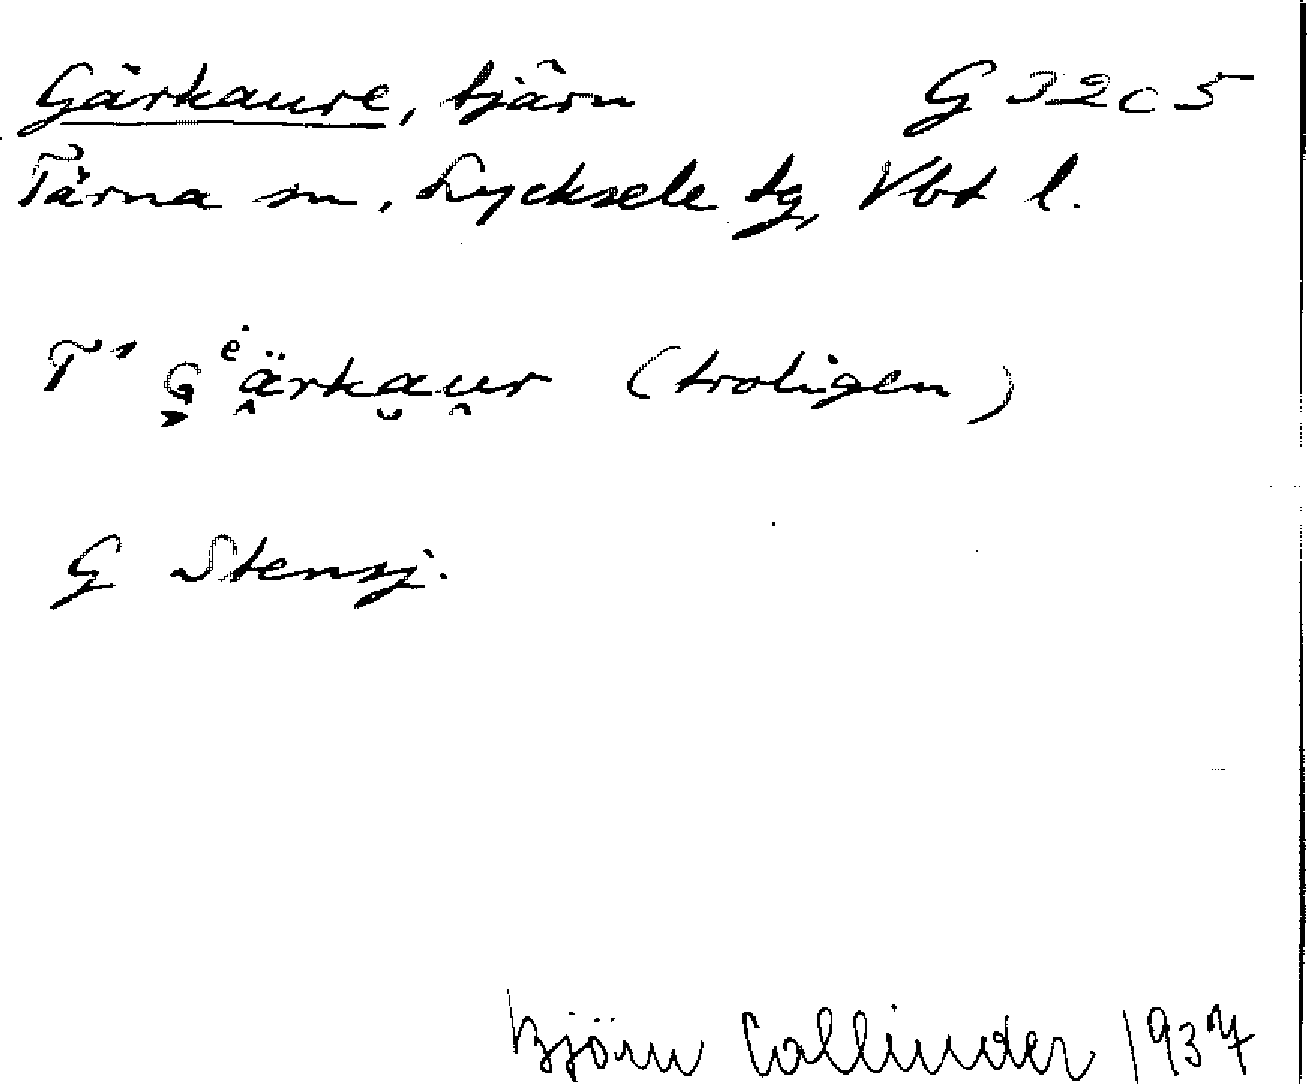 Gärkaure, tjärn G 32 c 5
Tärna sn, Lycksele tg, Vbt l.
T¹ G̬ėä̭rka̮u̯r (troligen)
G Stensj.
Björn Collinder 1937